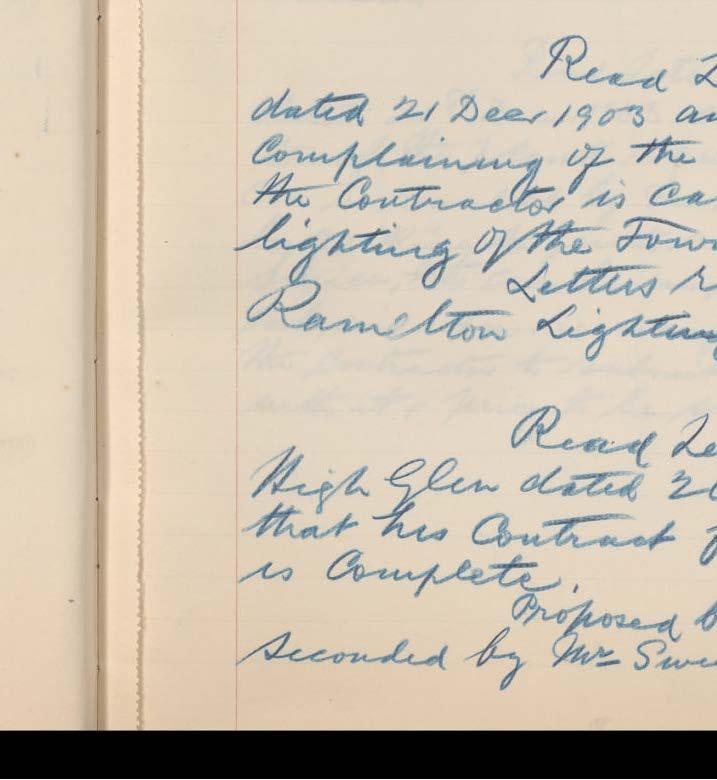 Read
dated 21 Decr 1903 an
Complaining of the
the Contractor is ca
lighting of the Tow
Letters
Ramelton Lighting
Read Le
High Glen dated 2
that his Contract
is Complete.
Proposed b
seconded by Mr Swe